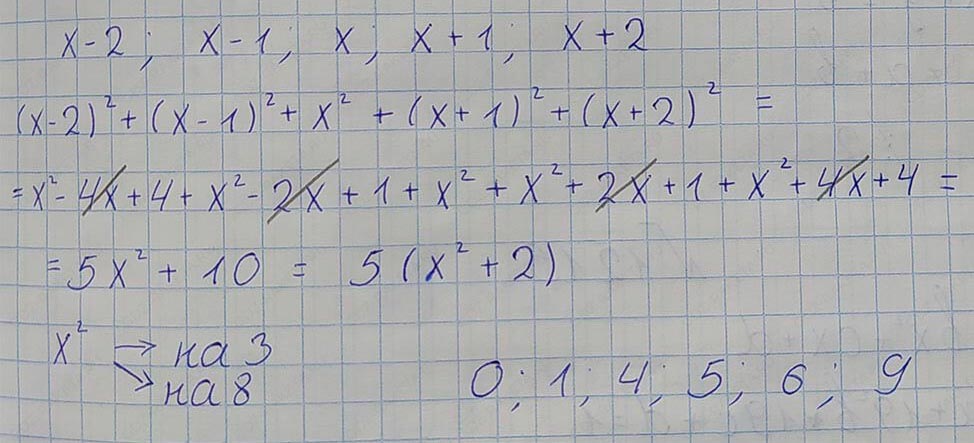 x-2; x-1; x; x+1; x+2
(x-2)²+(x-1)²+x²+(x+1)²+(x+2)² =
=x²-4x+4+x²-2x+1+x²+x²+2x+1+x²+4x+4=
=5x²+10 = 5(x²+2)
x² → на 3
→ на 8
0; 1; 4; 5; 6; 9